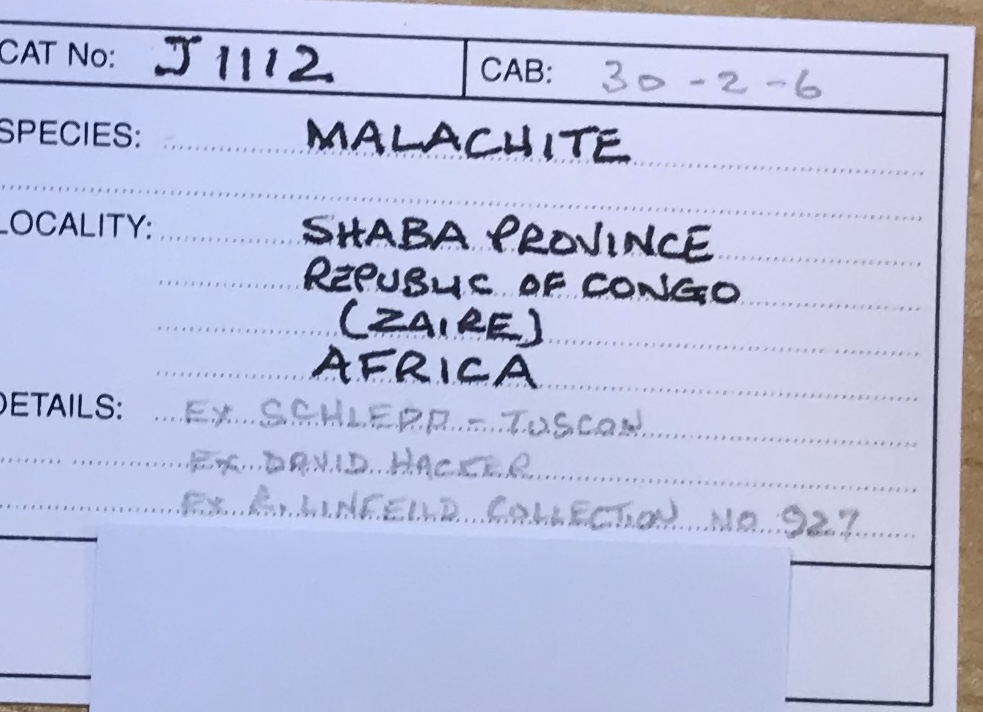 CAT No: J1112 CAB: 30-2-6
SPECIES: MALACHITE
LOCALITY: SHABA PROVINCE
REPUBLIC OF CONGO
(ZAIRE)
AFRICA
DETAILS: EX SCHLEPP - TUSCON
EX DAVID HACKER
EX R. LINFEILD COLLECTION NO 927